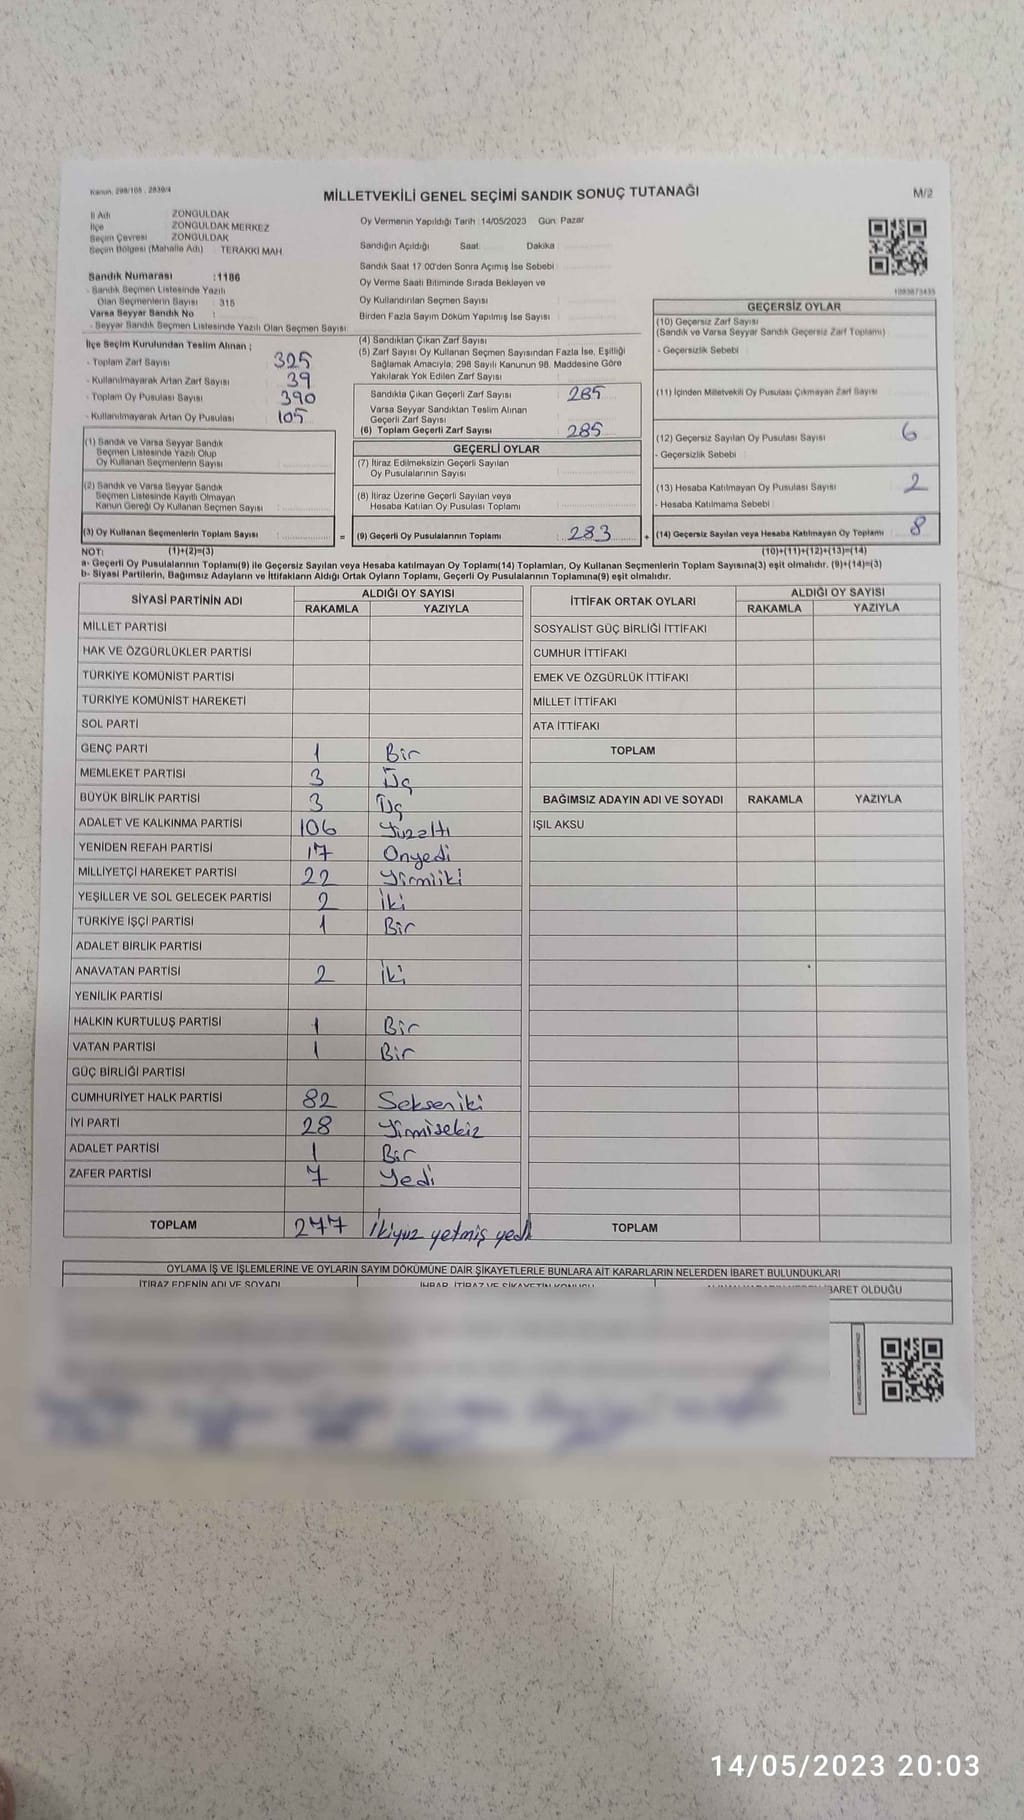 Kanun, 298/105 , 2839/4
MİLLETVEKİLİ GENEL SEÇİMİ SANDIK SONUÇ TUTANAĞI
M/2
İl Adı ZONGULDAK
İlçe ZONGULDAK MERKEZ
Seçim Çevresi ZONGULDAK
Seçim Bölgesi (Mahalle Adı) TERAKKİ MAH
Sandık Numarası :1186
- Sandık Seçmen Listesinde Yazılı
Olan Seçmenlerin Sayısı : 315
Varsa Seyyar Sandık No :
- Seyyar Sandık Seçmen Listesinde Yazılı Olan Seçmen Sayısı:
Oy Vermenin Yapıldığı Tarih :14/05/2023 Gün: Pazar
Sandığın Açıldığı Saat Dakika
Sandık Saat 17:00'den Sonra Açılmış İse Sebebi
Oy Verme Saati Bitiminde Sırada Bekleyen ve
Oy Kullandırılan Seçmen Sayısı
Birden Fazla Sayım Döküm Yapılmış İse Sayısı
İlçe Seçim Kurulundan Teslim Alınan ;
- Toplam Zarf Sayısı 325
- Kullanılmayarak Artan Zarf Sayısı 39
- Toplam Oy Pusulası Sayısı 390
- Kullanılmayarak Artan Oy Pusulası 105
(1) Sandık ve Varsa Seyyar Sandık
Seçmen Listesinde Yazılı Olup
Oy Kullanan Seçmenlerin Sayısı
(2) Sandık ve Varsa Seyyar Sandık
Seçmen Listesinde Kayıtlı Olmayan
Kanun Gereği Oy Kullanan Seçmen Sayısı
(3) Oy Kullanan Seçmenlerin Toplam Sayısı =
(4) Sandıktan Çıkan Zarf Sayısı
(5) Zarf Sayısı Oy Kullanan Seçmen Sayısından Fazla İse, Eşitliği
Sağlamak Amacıyla, 298 Sayılı Kanunun 98. Maddesine Göre
Yakılarak Yok Edilen Zarf Sayısı
Sandıkta Çıkan Geçerli Zarf Sayısı 285
Varsa Seyyar Sandıktan Teslim Alınan
Geçerli Zarf Sayısı
(6) Toplam Geçerli Zarf Sayısı 285
GEÇERLİ OYLAR
(7) İtiraz Edilmeksizin Geçerli Sayılan
Oy Pusulalarının Sayısı
(8) İtiraz Üzerine Geçerli Sayılan veya
Hesaba Katılan Oy Pusulası Toplamı
(9) Geçerli Oy Pusulalarının Toplamı 283 +
GEÇERSİZ OYLAR
(10) Geçersiz Zarf Sayısı
(Sandık ve Varsa Seyyar Sandık Geçersiz Zarf Toplamı)
- Geçersizlik Sebebi
(11) İçinden Milletvekili Oy Pusulası Çıkmayan Zarf Sayısı
(12) Geçersiz Sayılan Oy Pusulası Sayısı 6
- Geçersizlik Sebebi
(13) Hesaba Katılmayan Oy Pusulası Sayısı 2
- Hesaba Katılmama Sebebi
(14) Geçersiz Sayılan veya Hesaba Katılmayan Oy Toplamı 8
NOT: (1)+(2)=(3) (10)+(11)+(12)+(13)=(14)
a- Geçerli Oy Pusulalarının Toplamı(9) ile Geçersiz Sayılan veya Hesaba katılmayan Oy Toplamı(14) Toplamları, Oy Kullanan Seçmenlerin Toplam Sayısına(3) eşit olmalıdır. (9)+(14)=(3)
b- Siyasi Partilerin, Bağımsız Adayların ve İttifakların Aldığı Ortak Oyların Toplamı, Geçerli Oy Pusulalarının Toplamına(9) eşit olmalıdır.
SİYASİ PARTİNİN ADI ALDIĞI OY SAYISI
RAKAMLA YAZIYLA
MİLLET PARTİSİ
HAK VE ÖZGÜRLÜKLER PARTİSİ
TÜRKİYE KOMÜNİST PARTİSİ
TÜRKİYE KOMÜNİST HAREKETİ
SOL PARTİ
GENÇ PARTİ 1 Bir
MEMLEKET PARTİSİ 3 Üç
BÜYÜK BİRLİK PARTİSİ 3 Üç
ADALET VE KALKINMA PARTİSİ 106 Yüzaltı
YENİDEN REFAH PARTİSİ 17 Onyedi
MİLLİYETÇİ HAREKET PARTİSİ 22 Yirmiiki
YEŞİLLER VE SOL GELECEK PARTİSİ 2 İki
TÜRKİYE İŞÇİ PARTİSİ 1 Bir
ADALET BİRLİK PARTİSİ
ANAVATAN PARTİSİ 2 İki
YENİLİK PARTİSİ
HALKIN KURTULUŞ PARTİSİ 1 Bir
VATAN PARTİSİ 1 Bir
GÜÇ BİRLİĞİ PARTİSİ
CUMHURİYET HALK PARTİSİ 82 Sekseniki
İYİ PARTİ 28 Yirmisekiz
ADALET PARTİSİ 1 Bir
ZAFER PARTİSİ 7 Yedi
TOPLAM 277 İkiyüz yetmiş yedi
İTTİFAK ORTAK OYLARI ALDIĞI OY SAYISI
RAKAMLA YAZIYLA
SOSYALİST GÜÇ BİRLİĞİ İTTİFAKI
CUMHUR İTTİFAKI
EMEK VE ÖZGÜRLÜK İTTİFAKI
MİLLET İTTİFAKI
ATA İTTİFAKI
TOPLAM
BAĞIMSIZ ADAYIN ADI VE SOYADI RAKAMLA YAZIYLA
IŞIL AKSU
TOPLAM
OYLAMA İŞ VE İŞLEMLERİNE VE OYLARIN SAYIM DÖKÜMÜNE DAİR ŞİKAYETLERLE BUNLARA AİT KARARLARIN NELERDEN İBARET BULUNDUKLARI
İTİRAZ EDENİN ADI VE SOYADI İHBAR, İTİRAZ VE ŞİKAYETİN KONUSU BARET OLDUĞU
14/05/2023 20:03